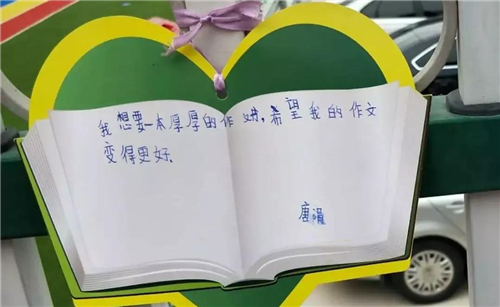 我想要一本厚厚的作文书,希望我的作文
变得更好
唐